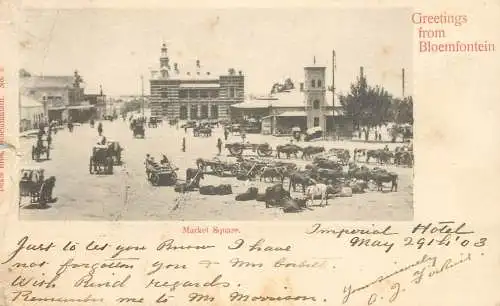 Greetings
from
Bloemfontein
Market Square.
Imperial Hotel
May 29th 03
Just to let you Know I have
not forgotten you & Mrs
With Kind regards.
Remember me to Mr Morrison.
yours sincerely